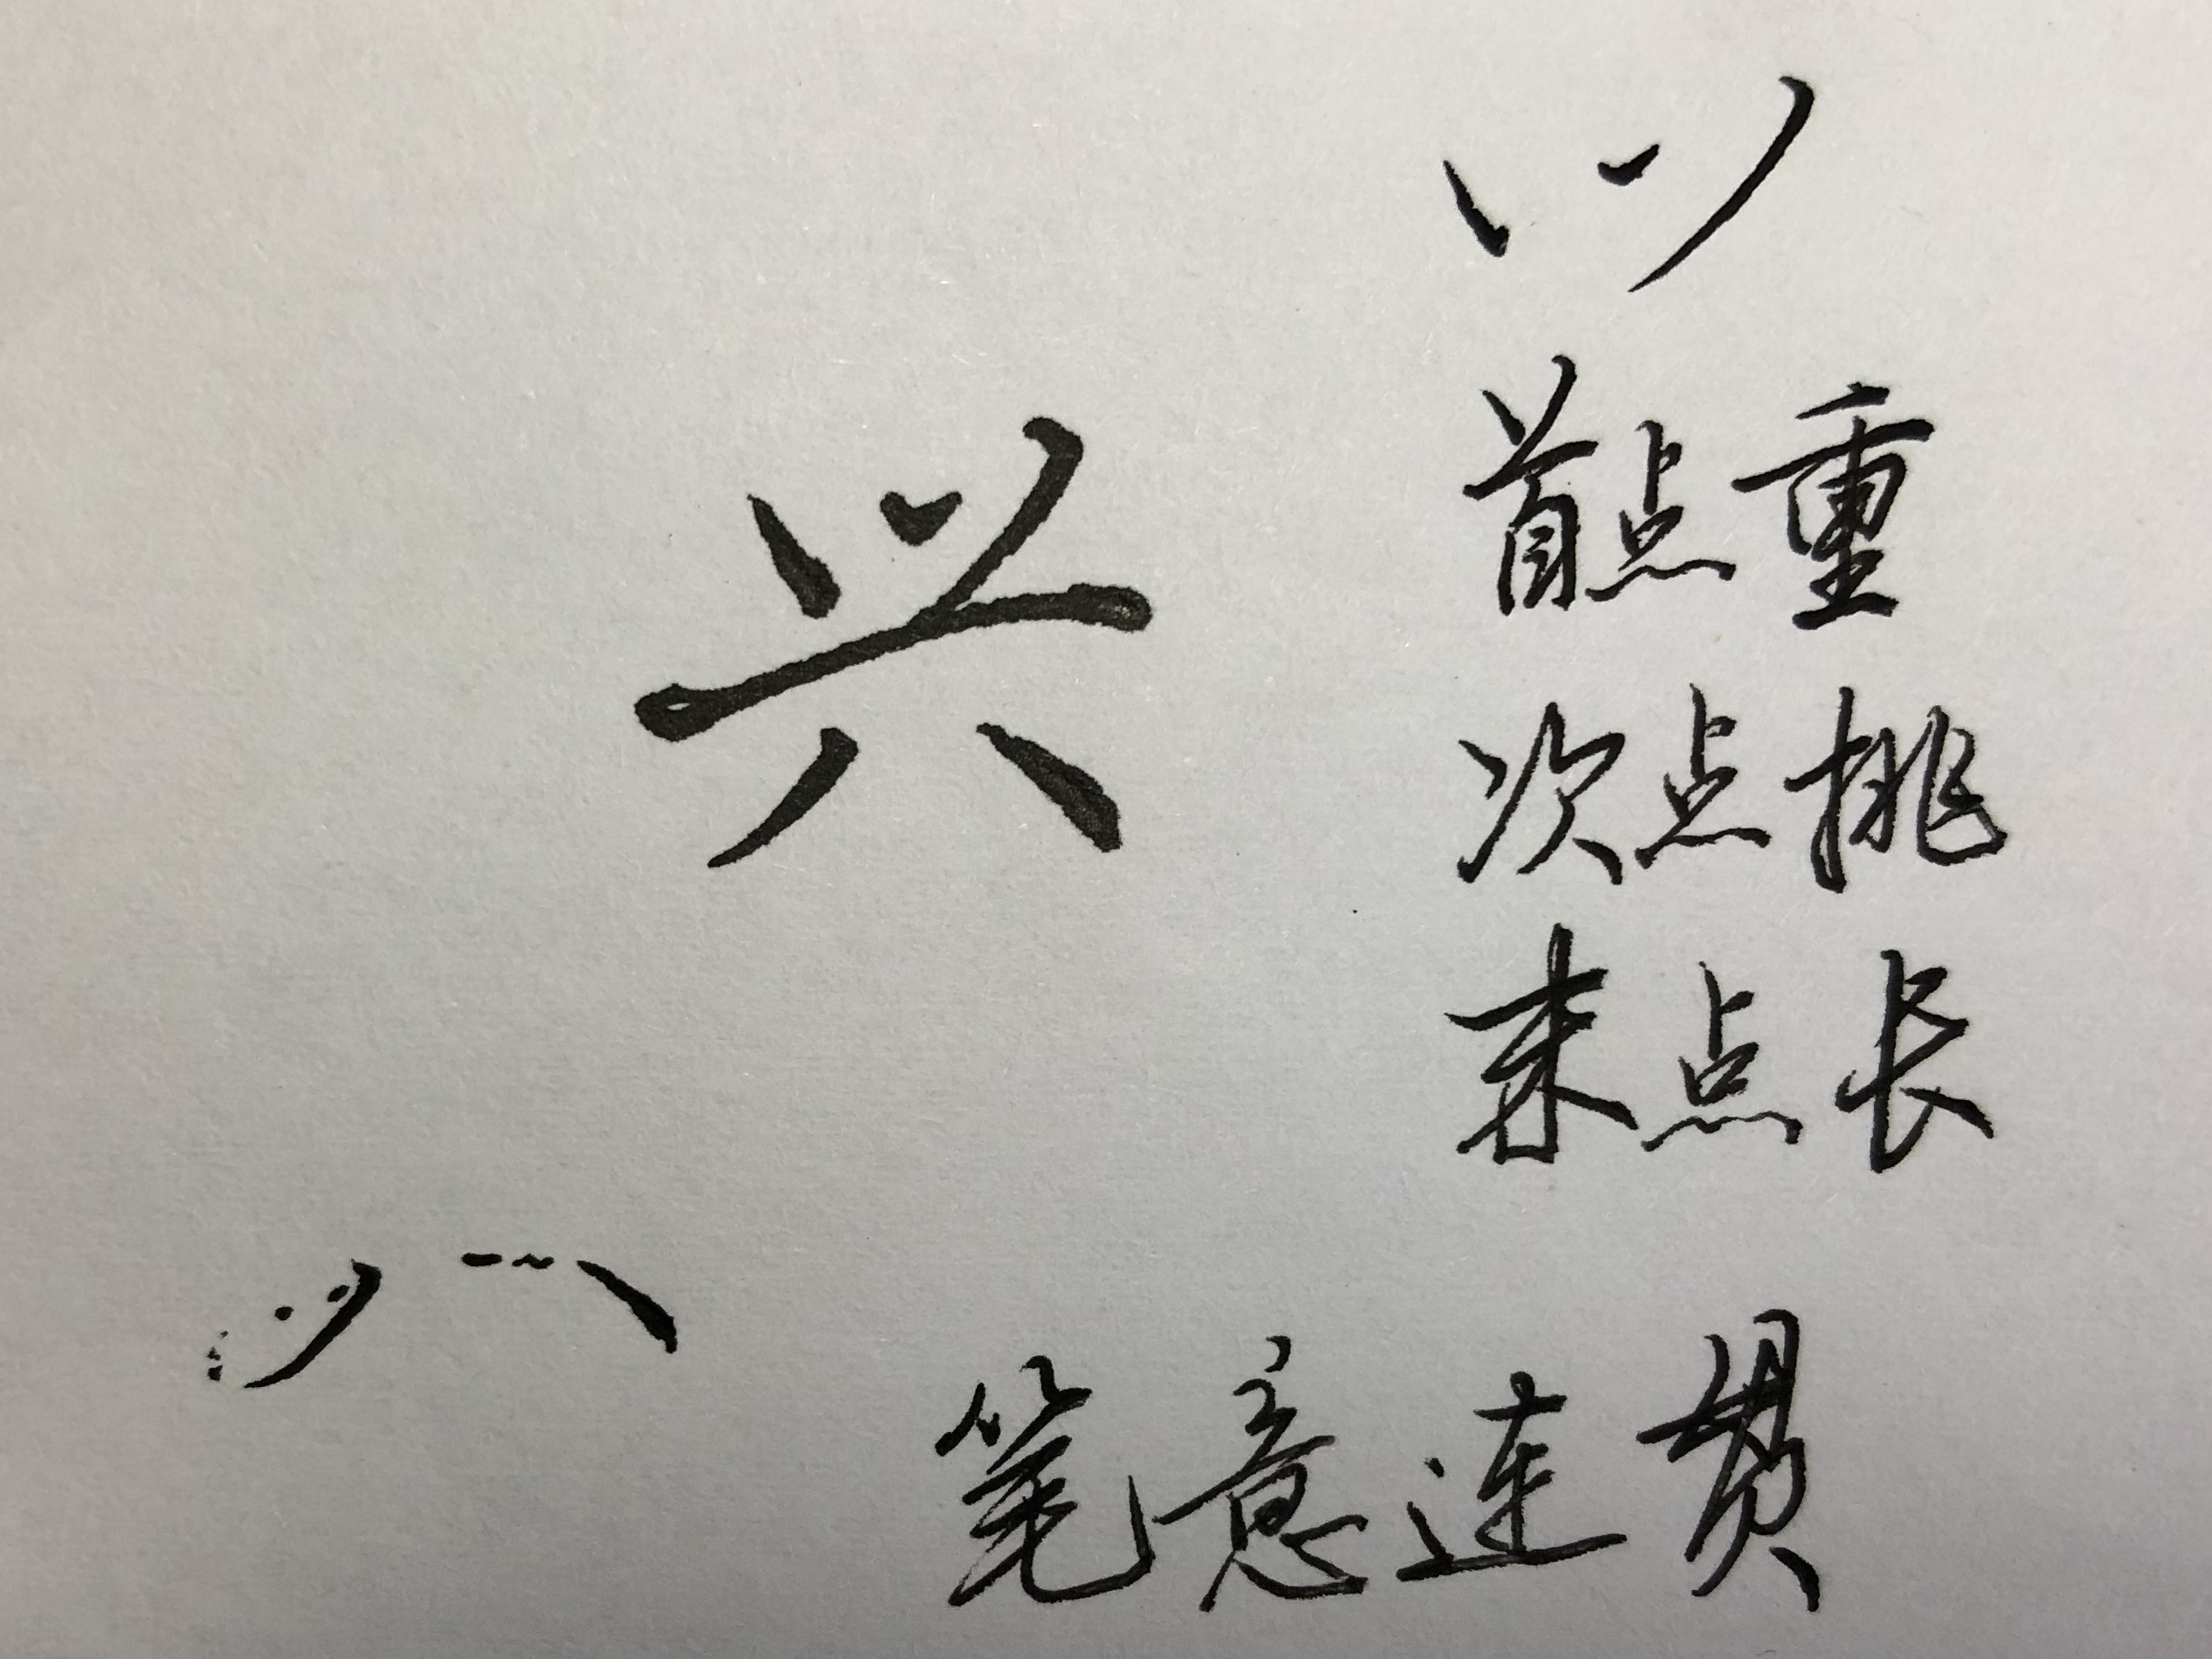 兴
首点重
次点挑
末点长
笔意连贯